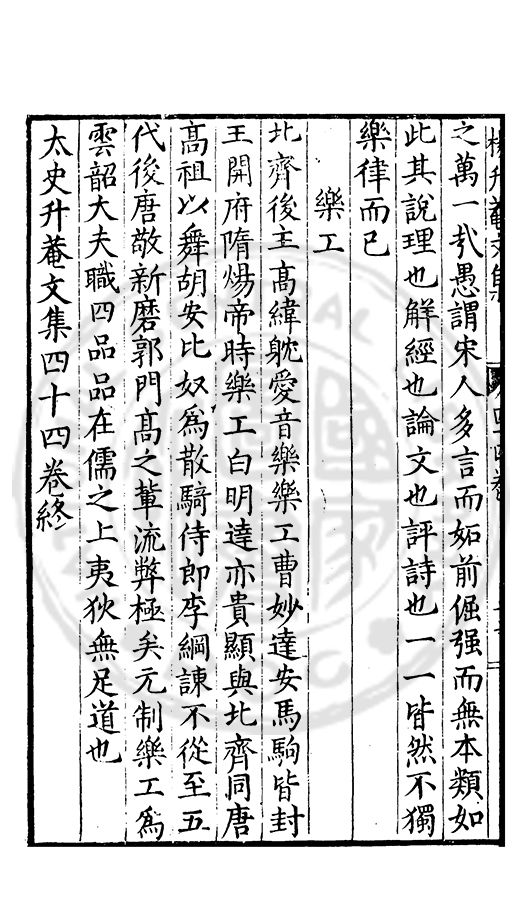 之萬一㢤愚謂宋人多言而妬前倔强而無本類如
此其說理也解經也論文也評詩也一一皆然不獨
樂律而已
樂工
北齊後主高緯躭愛音樂樂工曹妙達安馬駒皆封
王開府隋煬帝時樂工白明達亦貴顯與北齊同唐
高祖以舞胡安比奴為散騎侍郎李綱諫不從至五
代後唐敬新磨郭門高之軰流弊極矣元制樂工為
雲韶大夫職四品品在儒之上夷狄無足道也
太史升菴文集四十四卷終